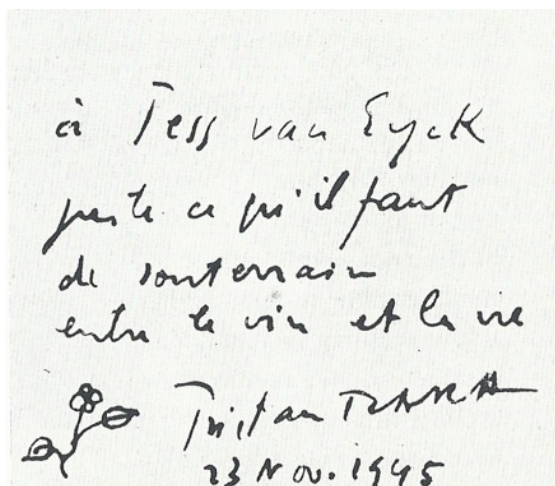 à Tess van Eyck
juste ce qu'il faut
de souterrain
entre le vin et la vie
Tristan TZARA
23 Nov. 1945